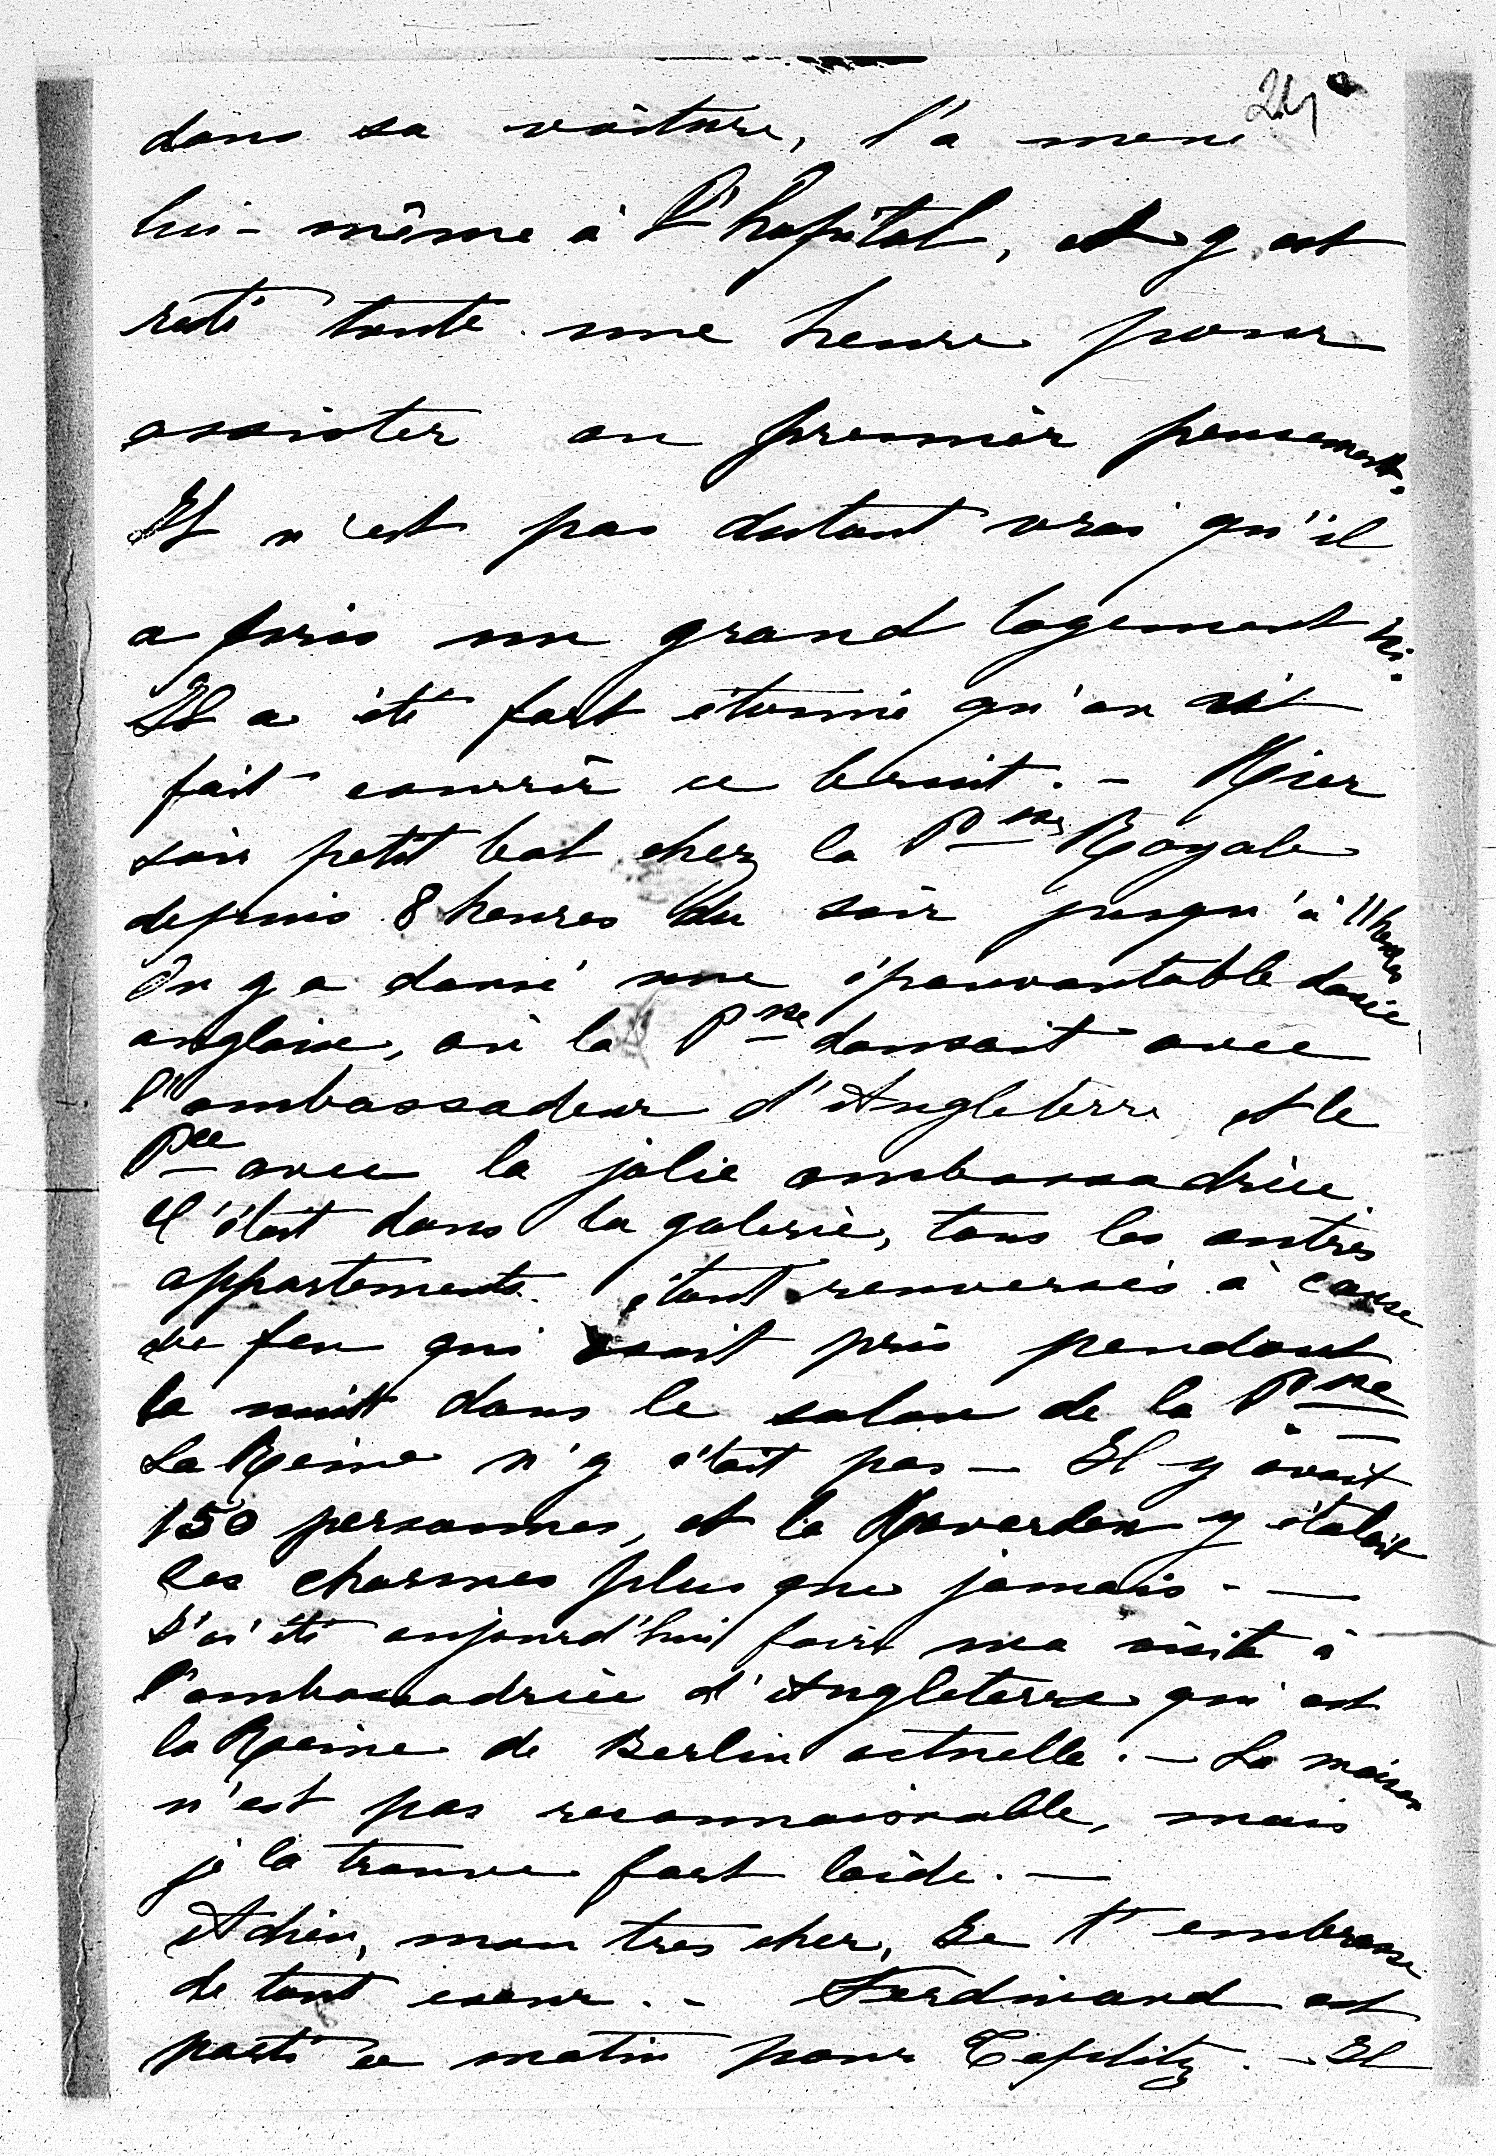 24
dans sa voiture, l'a mené
lui-même à l'hôpital, et y est
resté toute une heure pour
assister au premier pansement.
Il n'est pas dutout vrai qu'il
a pris un grand logement ici.
Il a été fort étonné qu'on ait
fait courrir ce bruit. - Hier
soir petit bal chez la Psse Royale
depuis 8 heures du soir jusqu'à 11 heures
On y a dansé une épouvantable danse
anglaise, où la Psse dansait avec
l'ambassadeur d'Angleterre et le
Pce avec la jolie ambassadrice
C'était dans la galerie, tous les autres
appartements étant renversés à cause
de feu qui avait pris pendant
la nuit dans le salon de la Psse
La Reine n'y était pas - Il y avait
150 personnes, et la y étalait
ses charmes plus que jamais. -
J'ai été aujourd'hui faire ma visite à
l'ambassadrice d'Angleterre qui est
la Reine de Berlin actuelle. - La maison
n'est pas reconnaissable, mais
je la trouve fort laide. -
Adieu, mon tres cher, Je t'embrasse
de tout coeur. - Ferdinand est
parti ce matin pour Teplitz. - Il